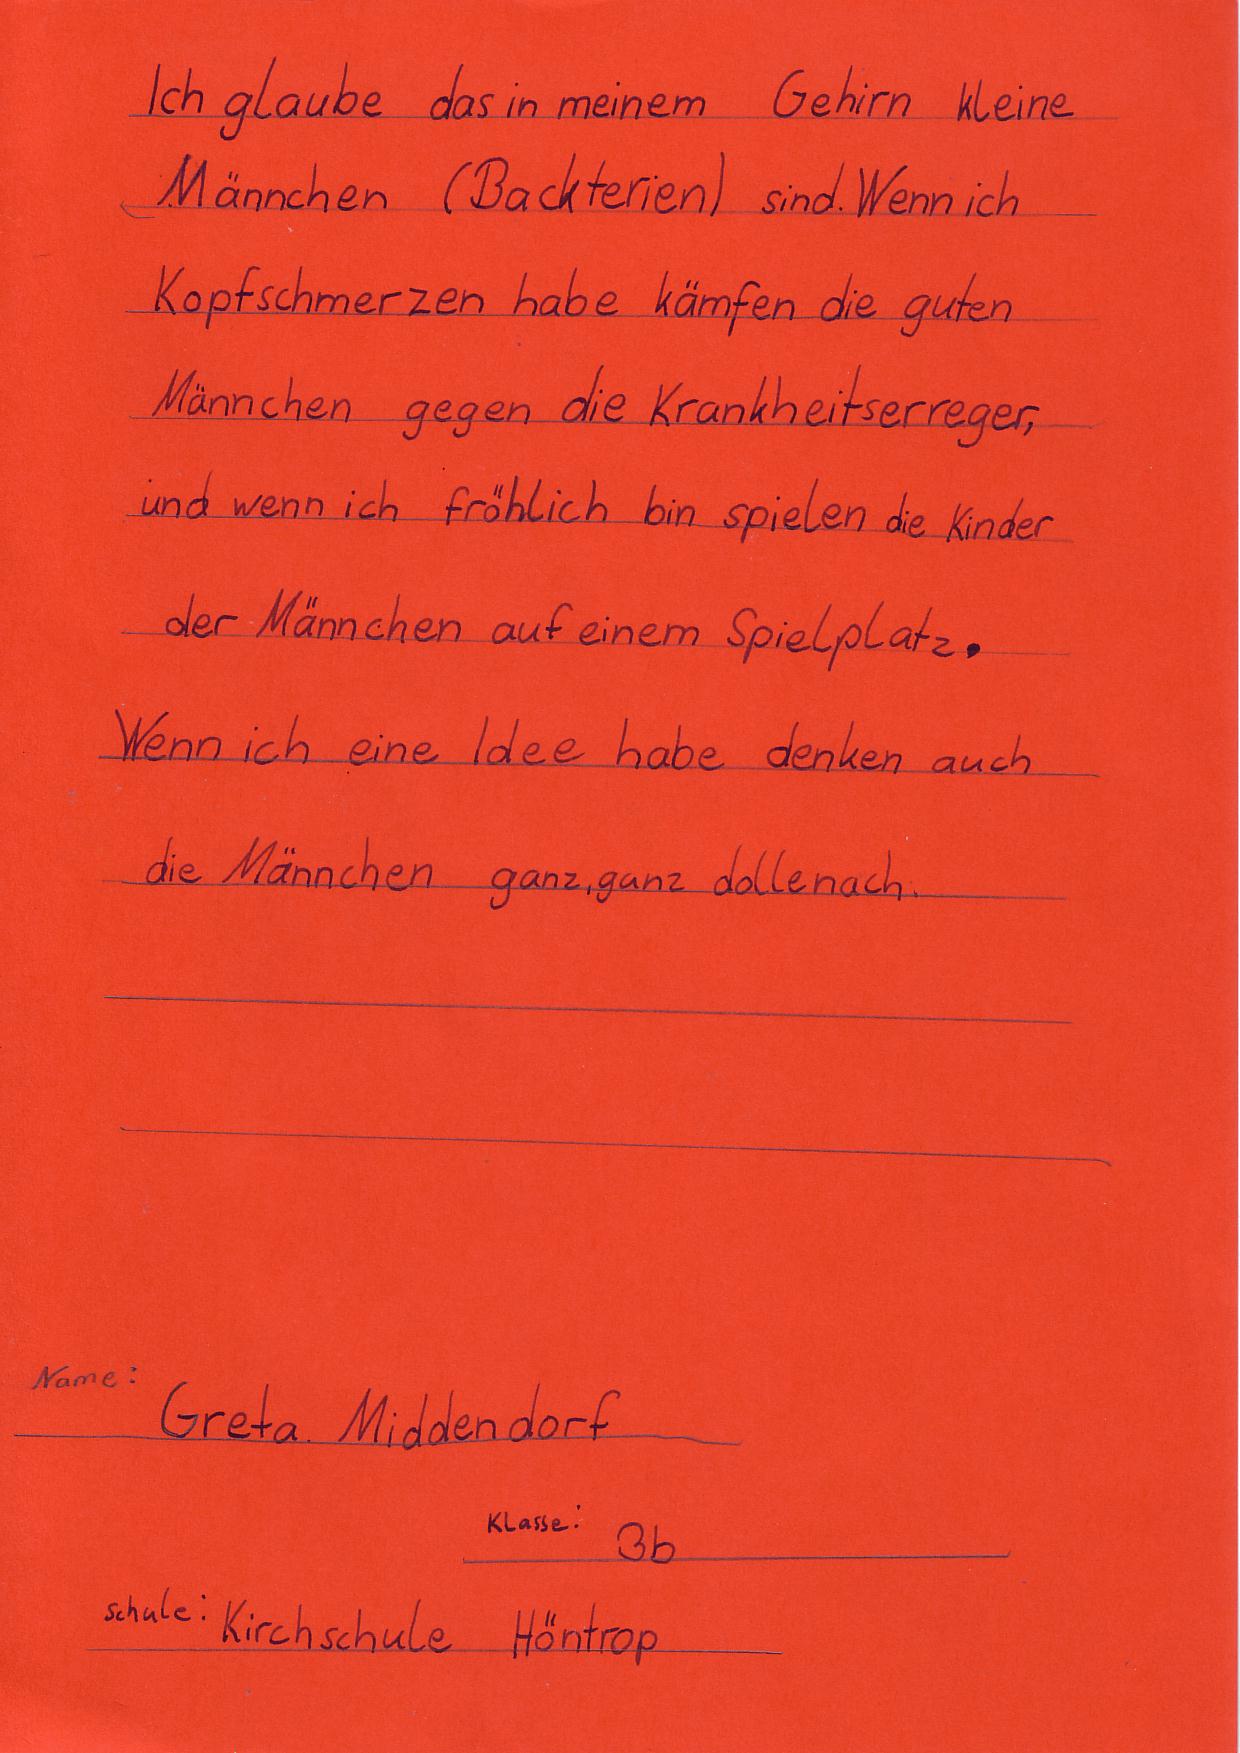 Ich glaube das in meinem Gehirn kleine
Männchen (Backterien) sind. Wenn ich
Kopfschmerzen habe kämfen die guten
Männchen gegen die Krankheitserreger,
und wenn ich fröhlich bin spielen die Kinder
der Männchen auf einem Spielplatz.
Wenn ich eine Idee habe denken auch
die Männchen ganz, ganz dolle nach.
Name:
Greta Middendorf
Klasse: 3b
schule: Kirchschule Höntrop